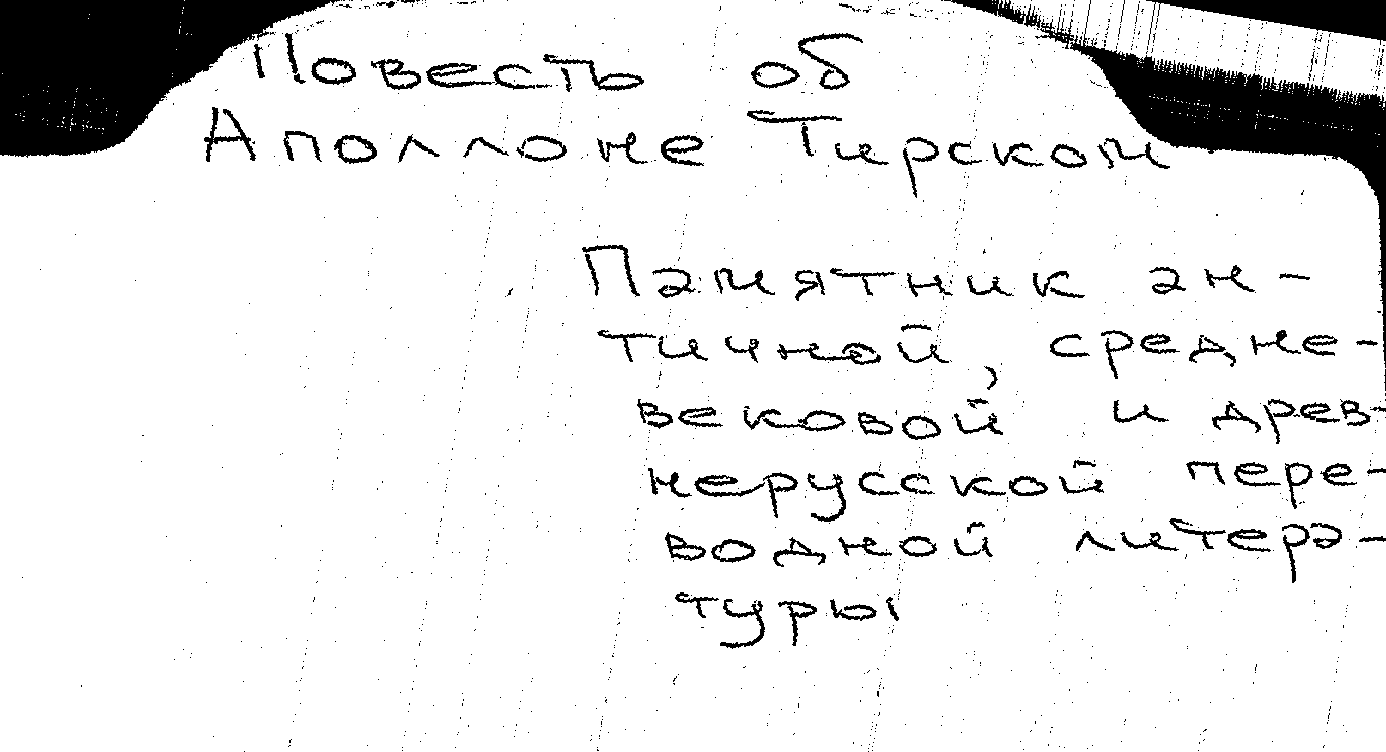 Повесть об
Аполлоне Тирском
Памятник ан-
тичной, средне-
вековой и древ-
нерусской пере-
водной литера-
туры